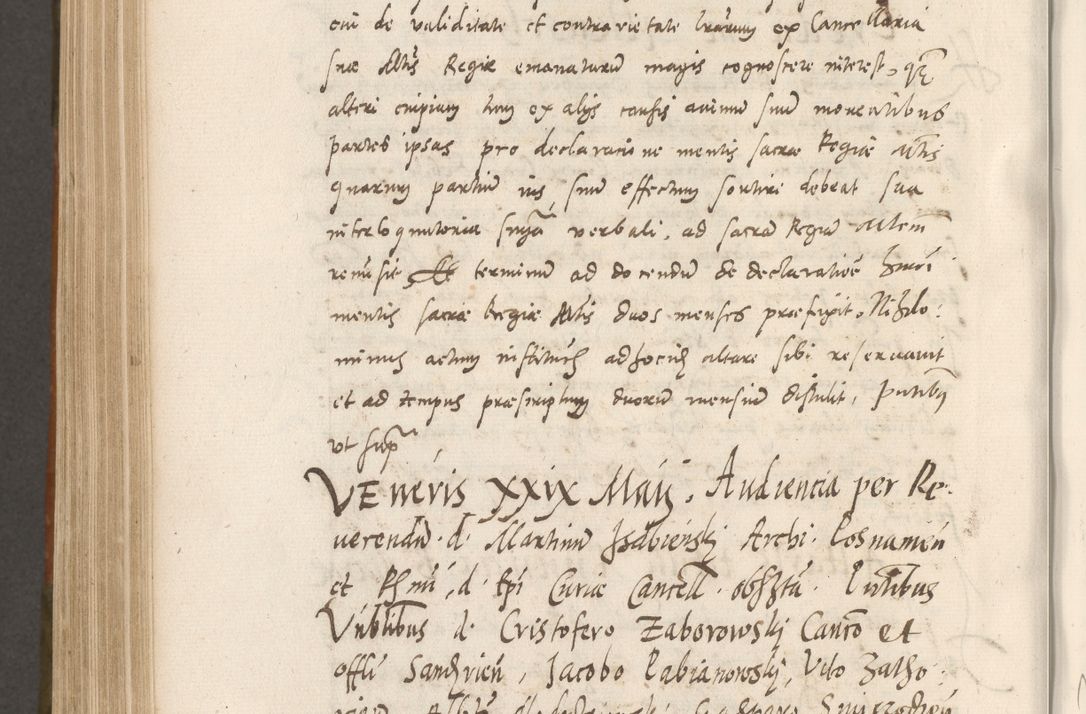 cui de validitate et contrarietate lrarum ex Cancellaria
suæ Mtis Regiæ emanaturū magis cognoscere interest, qꝫ
alteri cuipiam tum ex alijs causis animū suū moventibus
partes ipsas pro declaracione mentis sacræ Regiæ Mtis
quarum partiū ius, suū effectum sortire debeat sua
interloquutoria snija verbali, ad sacrā Regiā Mtem
remisit Et terminū ad docendū de declaratiōe hmōi
mentis sacræ Regiæ Mtis duos menses præfixit. Nihilo:
minus actum institutū adhoc
sibi reservavit
et ad tempus præscriptum duorū mensiū distulit, pntibus
ut supra
VEneris XXIX Maij. Audiencia per Re:
verendū d. Martinū Isdbieński Archi. Posnanień
et Rsmi, d. Epi Curiæ Cancell.
Pntibus
Vnblibus d. Cristofero Zaborowskj Canco et
offli Sandzień, Jacobo Pabianowskj, Vito Zatho: